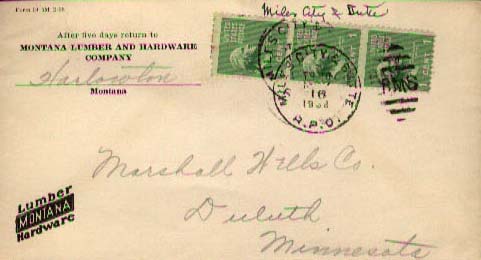 Form 14 1M 2-38
After five days return to
MONTANA LUMBER AND HARDWARE
COMPANY
Harlowton
Montana
Miles City & Butte
MILES CITY & BUTTE
16
R.P.O.
RMS
Marshall Wells Co.
Duluth
Minnesota
Lumber
MONTANA
Hardware